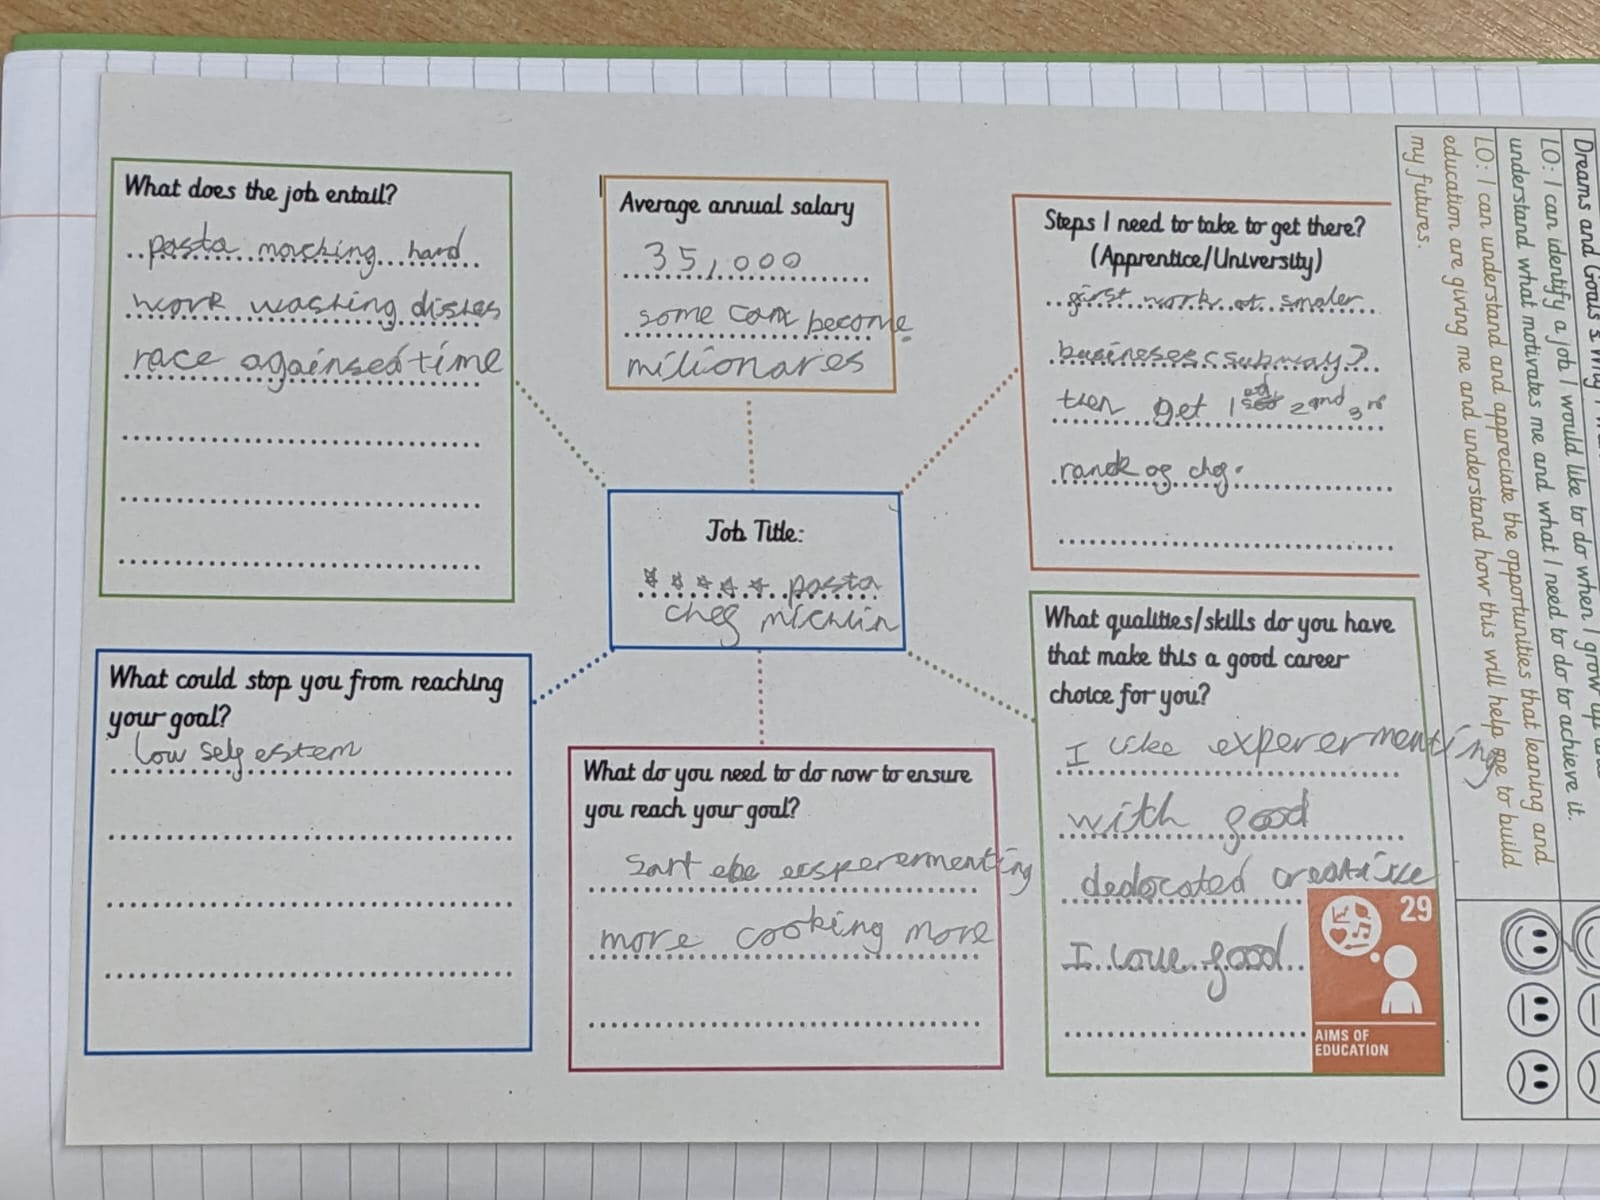 What does the job entail?
pasta morching hard
work washing disshes
race againsed time
Average annual salary
35,000
some can become
milionaries
Steps I need to take to get there?
(Apprentice/University)
first work at smaler
busineses (subway)
then get 1 2and 3
ranck of chef.
Job Title:
☆☆☆☆☆ pasta
chef michlin
What could stop you from reaching
your goal?
low self estem
What do you need to do now to ensure
you reach your goal?
more cooking more
What qualities/skills do you have
that make this a good career
choice for you?
I like expererementing
with food
dedocated creative
I love food
29
AIMS OF
EDUCATION
Dreams and Goals
LO: I can identify a job I would like to do when I grow up
understand what motivates me and what I need to do to achieve it.
LO: I can understand and appreciate the opportunities that leaning and
education are giving me and understand how this will help me to build
my futures.